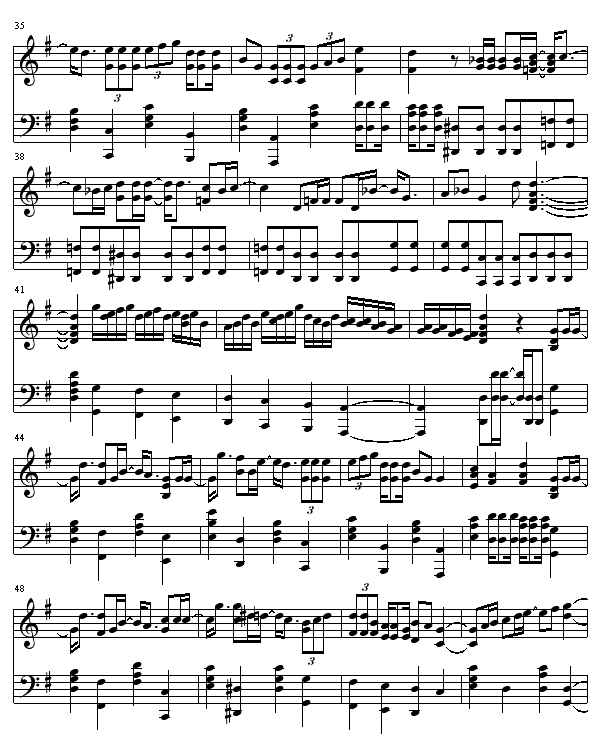 35
3
3
3
3
38
41
44
3
3
48
3
3